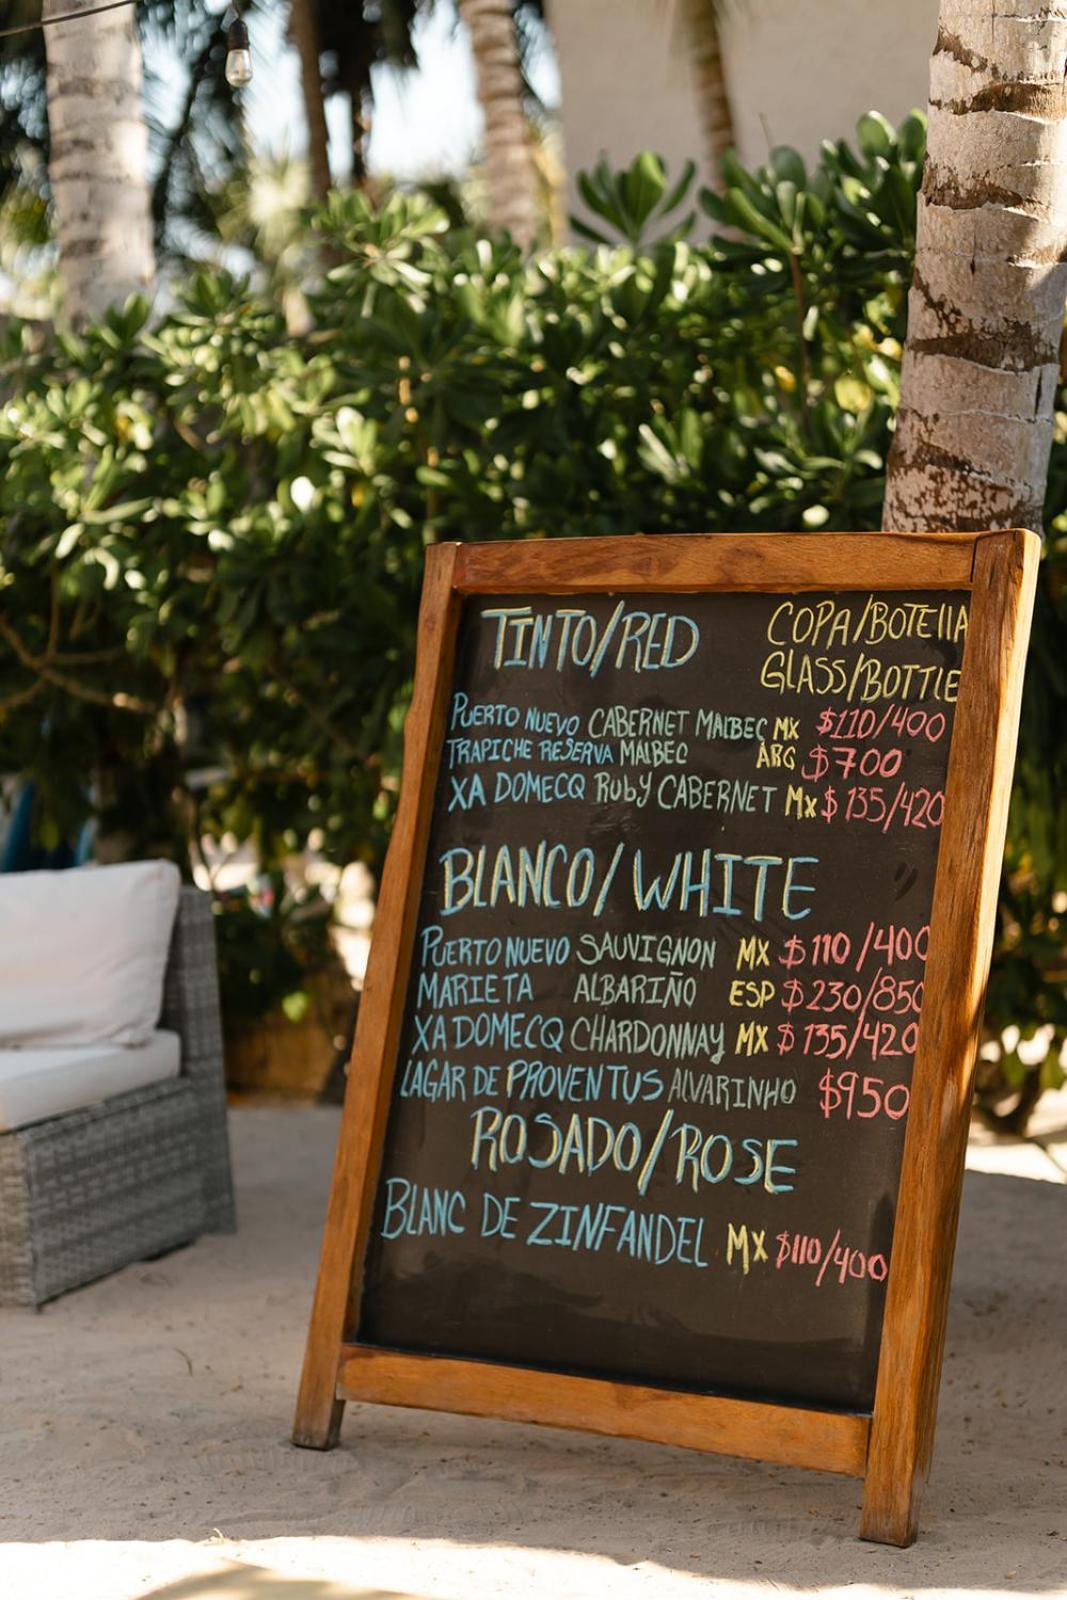 TINTO/RED COPA/BOTELLA
GLASS/BOTTLE
PUERTO NUEVO CABERNET MALBEC MX $110/400
TRAPICHE RESERVA MALBEC ARG $700
XA DOMECQ RUBY CABERNET MX $135/420
BLANCO/WHITE
PUERTO NUEVO SAUVIGNON MX $110/400
MARIETA ALBARIÑO ESP $230/850
XA DOMECQ CHARDONNAY MX $135/420
LAGAR DE PROVENTUS ALVARINHO $950
ROSADO/ROSE
BLANC DE ZINFANDEL MX $110/400